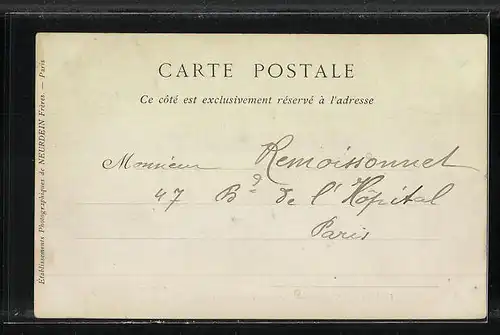 CARTE POSTALE
Ce côté est exclusivement réservé à l'adresse
Monsieur Remoissonnet
47 Bd de l'Hôpital
Paris
Etablissements Photographiques de NEURDEIN Frères. — Paris